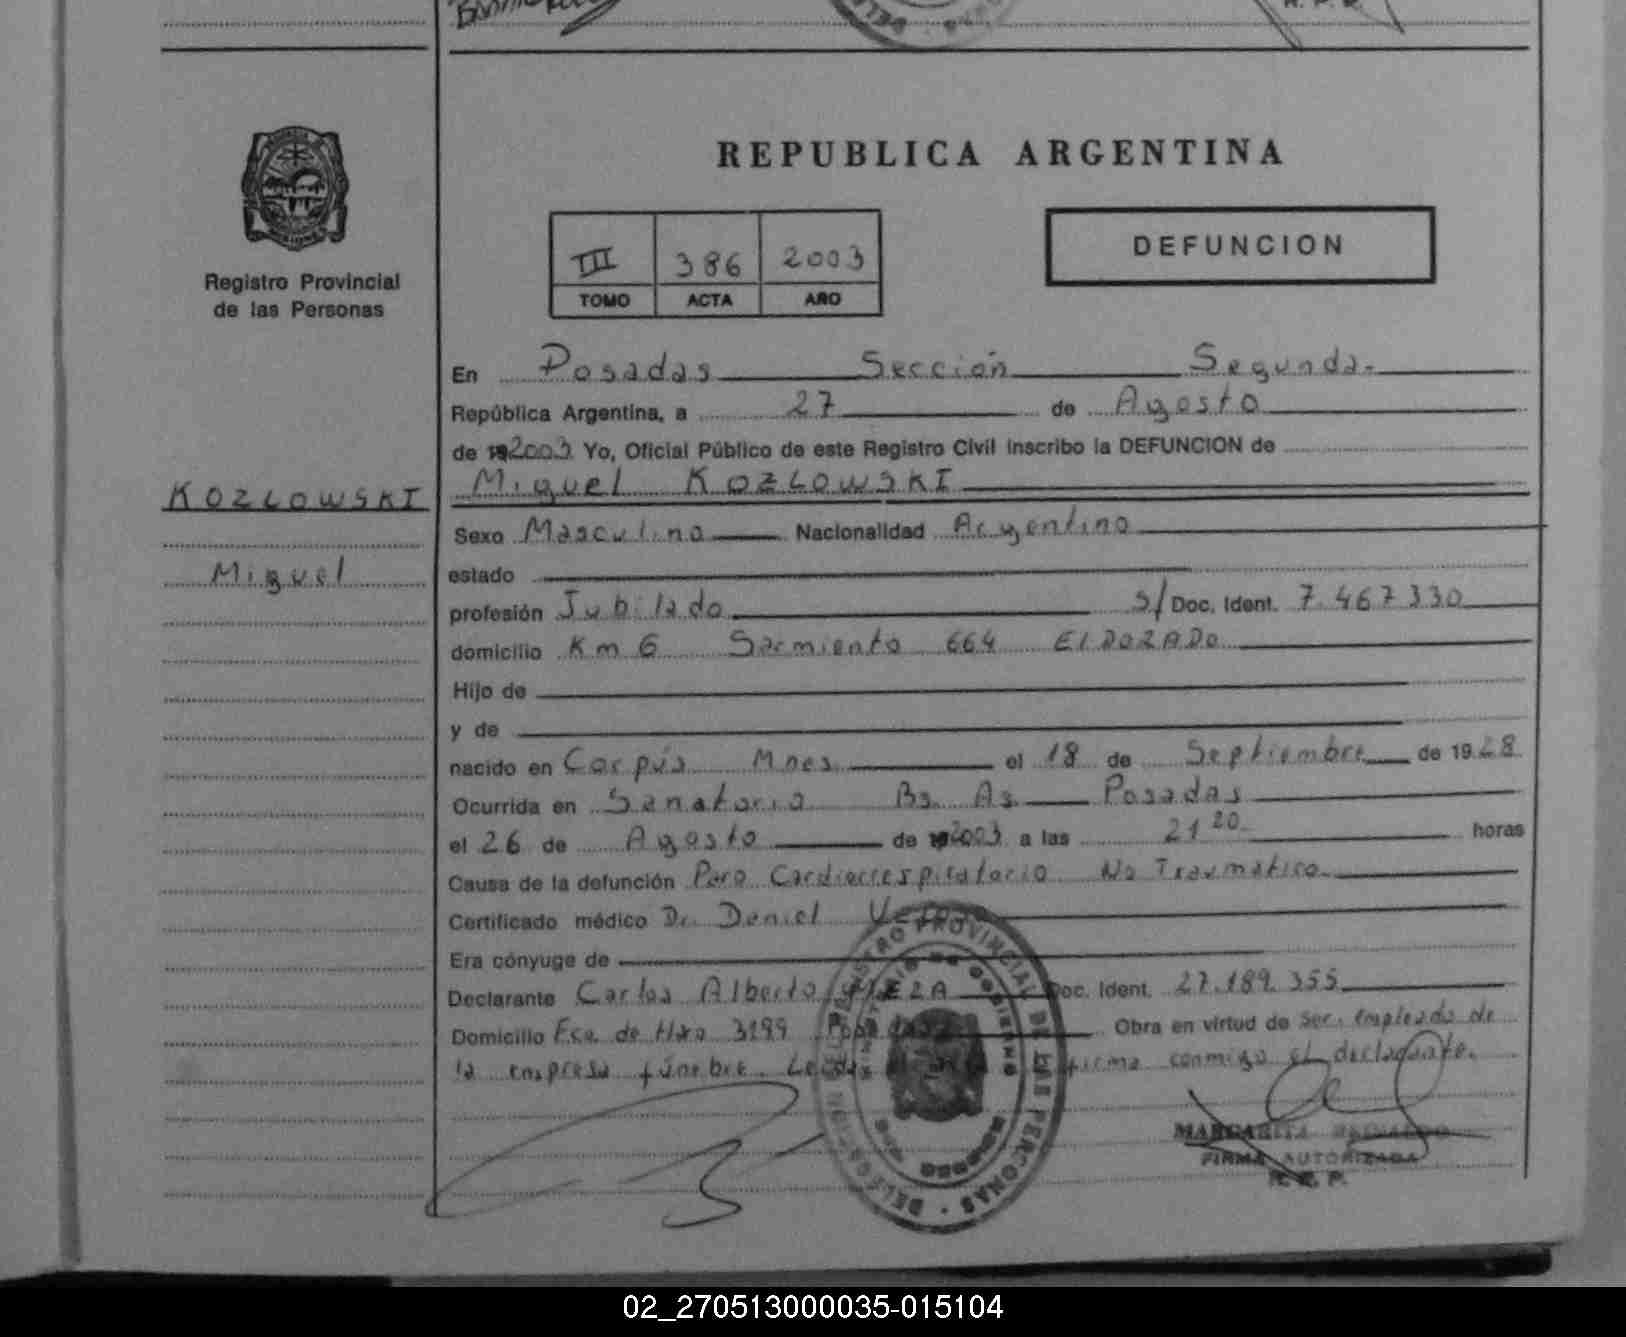 REPUBLICA ARGENTINA
Registro Provincial
de las Personas
III 386 2003
TOMO ACTA AÑO
DEFUNCION
En Posadas Sección Segunda.
República Argentina, a 27 de Agosto
de 192003 Yo, Oficial Público de este Registro Civil inscribo la DEFUNCION de
KOZLOWSKI
Miguel
Miguel KOZLOWSKI
Sexo Masculino Nacionalidad Argentino
estado
profesión Jubilado S/ Doc. Ident. 7.467330
domicilio Km 6 Sarmiento 664 ElDORADO
Hijo de
y de
nacido en Corpús Mnes el 18 de Septiembre de 1928.
Ocurrida en Sanatorio Bs. As. Posadas
el 26 de Agosto de 192003 a las 21 20 horas
Causa de la defunción Paro Cardiorrespiratorio No Traumático
Certificado médico Dr. Daniel
Era cónyuge de
Declarante Carlos Alberto Doc. Ident. 27.189.355
Domicilio Fco. de Haro 3199 Obra en virtud de Ser. empleado de
la empresa fúnebre. firma conmigo el declarante.
REGISTRO PROVINCIAL DE LAS PERSONAS
MARGARITA
FIRMA AUTORIZADA
R. P. P.
02_270513000035-015104